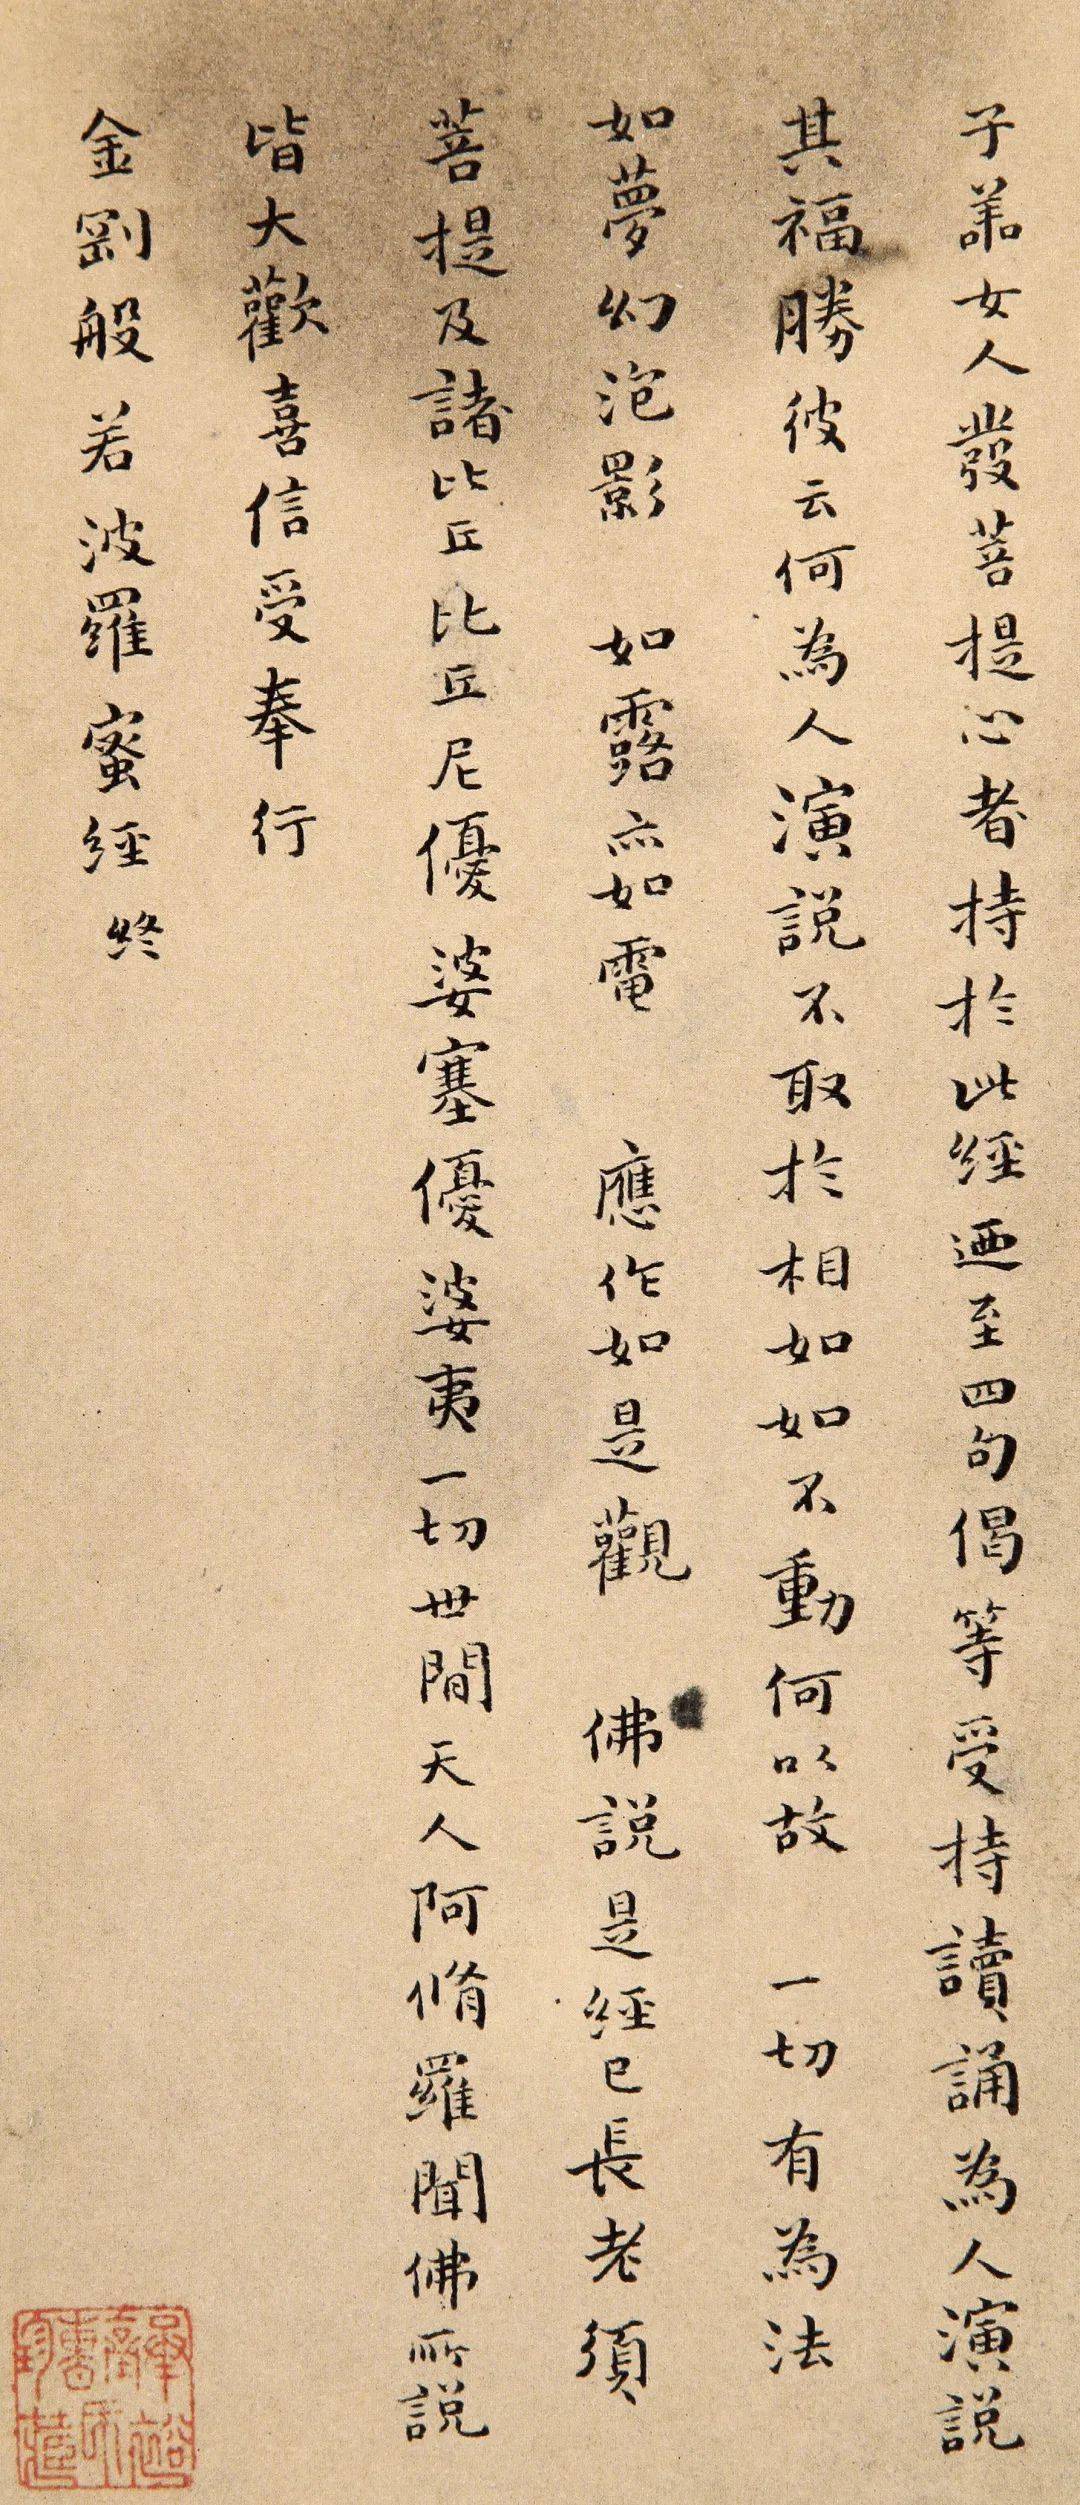 子苐女人發菩提心者持於此經迺至四句偈等受持讀誦為人演説
其福勝彼云何為人演説不取於相如如不動何以故 一切有為法
如夢幻泡影 如露亦如電 應作如是觀 佛説是經已長老須
菩提及諸比丘比丘尼優婆塞優婆夷一切世間天人阿脩羅聞佛所説
皆大歡喜信受奉行
金剛般若波羅蜜經 終